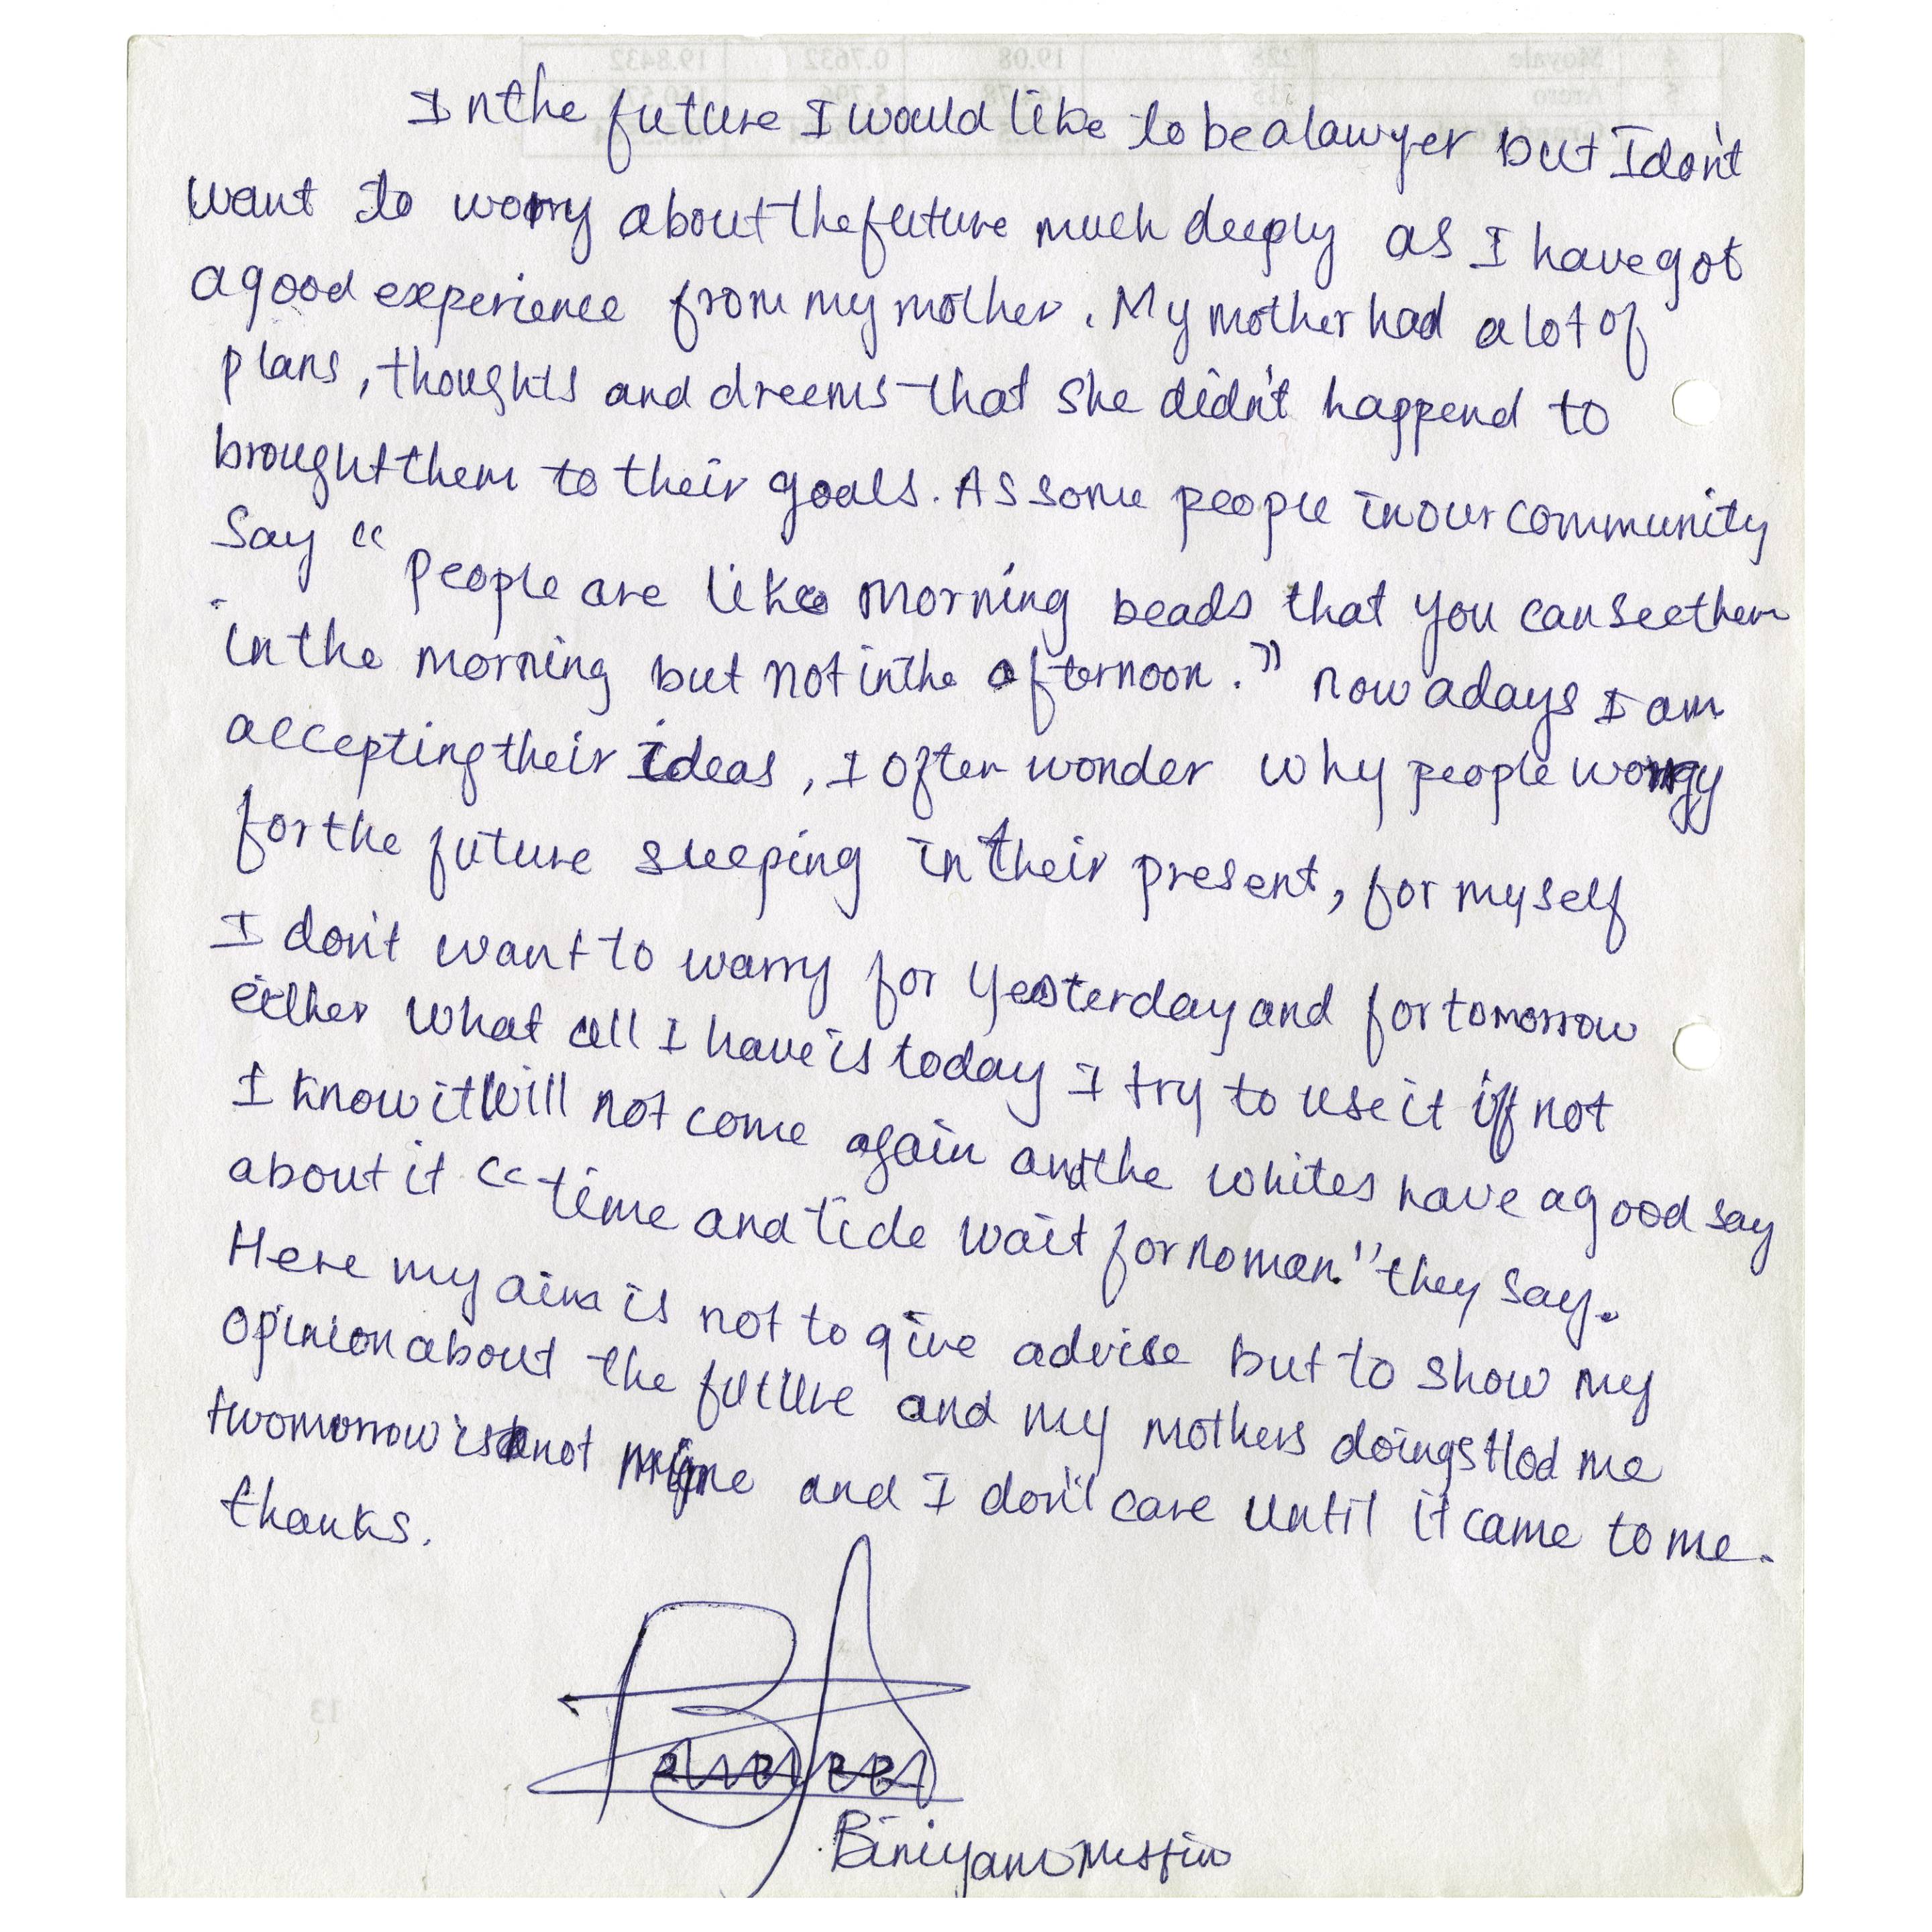 4 Moyale 228 19.08 0.7632 19.8432
5 Arero
In the future I would like to be a lawyer but I don't
want to worry about the future much deeply as I have got
a good experience from my mother. My mother had a lot of
plans, thoughts and dreems that she didn't happend to
brought them to their goals. As some people in our community
say "people are like morning beads that you can see them
in the morning but not in the afternoon." now adays I am
accepting their ideas, I often wonder why people worry
for the future sleeping in their present, for my self
I don't want to warry for yesterday and for tomorrow
either what all I have is today I try to use it if not
I know it will not come again and the whites have a good say
about it "time and tide wait for no man." they say.
Here my aim is not to give advise but to show my
opinion about the future and my mothers doings tlod me
twomorrow is not mine and I don't care until it came to me.
thanks.
Biniyam Mesfin
13